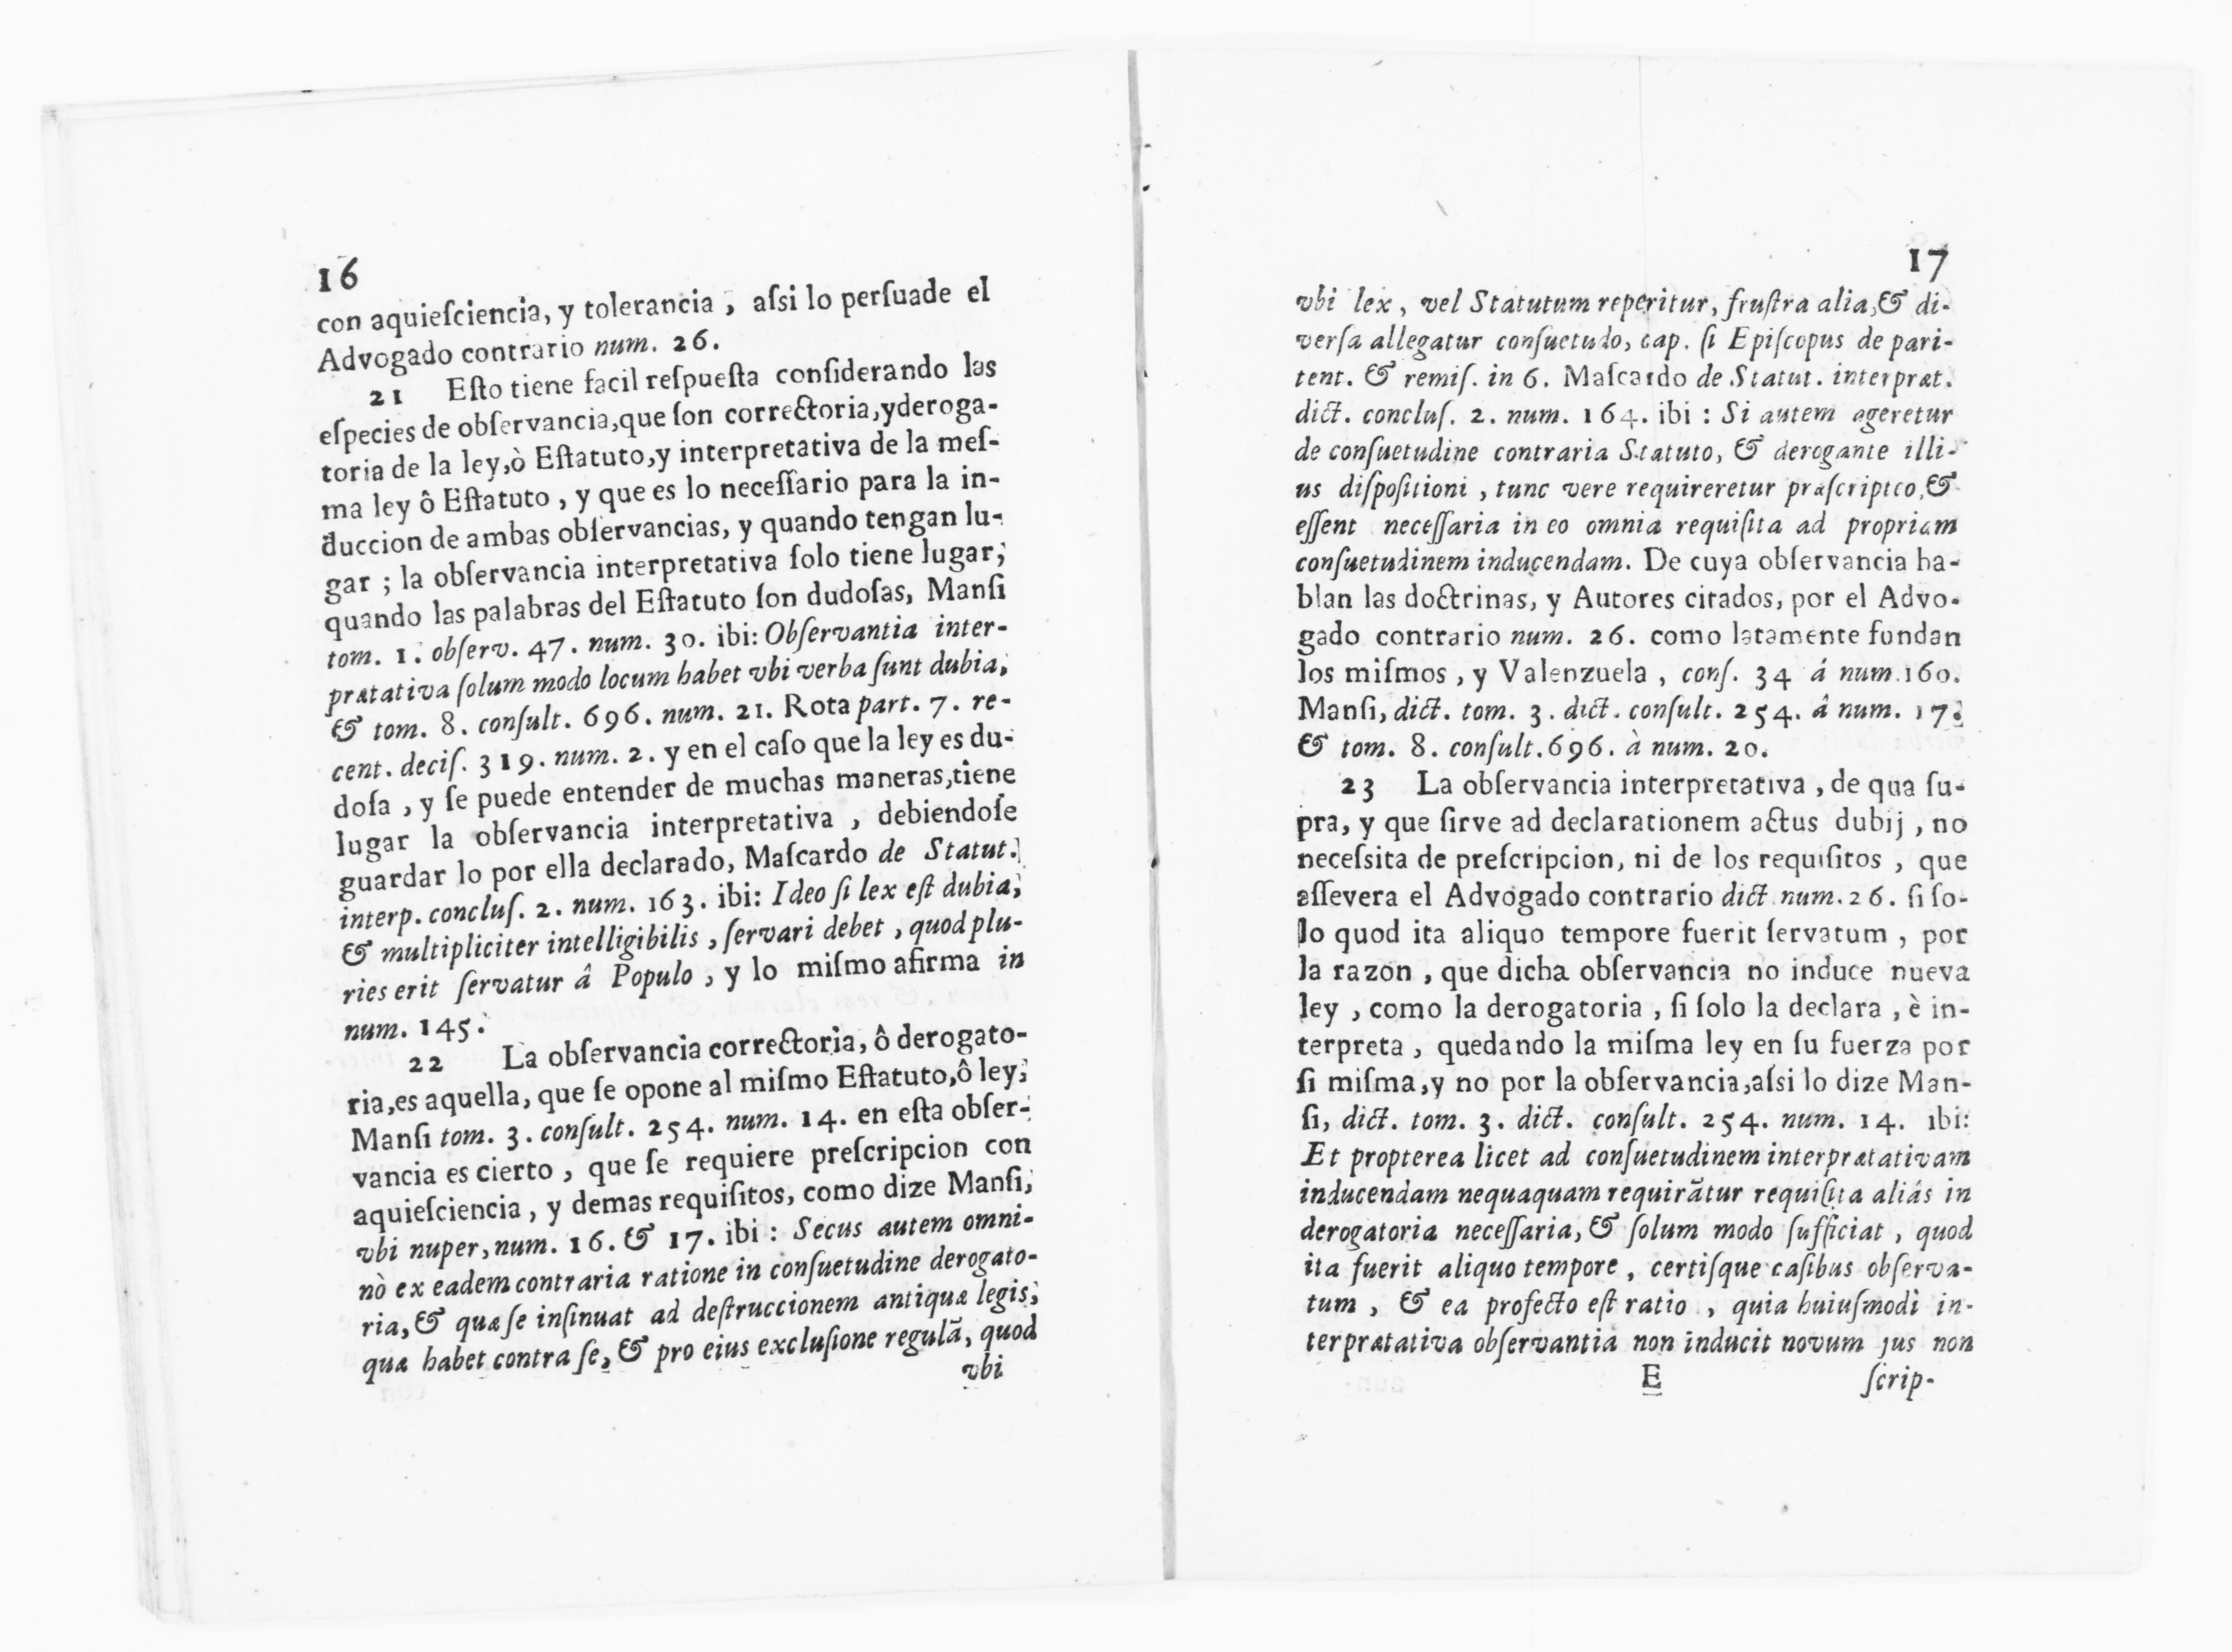 16
con aquieſciencia, y tolerancia, aſsi lo perſuade el
Advogado contrario num. 26.
21 Eſto tiene facil reſpueſta conſiderando las
eſpecies de obſervancia,que ſon correctoria,yderoga-
toria de la ley,ò Eſtatuto,y interpretativa de la meſ-
ma ley ô Eſtatuto, y que es lo neceſſario para la in-
duccion de ambas obſervancias, y quando tengan lu-
gar; la obſervancia interpretativa ſolo tiene lugar,
quando las palabras del Eſtatuto ſon dudoſas, Manſi
tom. 1. obſerv. 47. num. 30. ibi: Obſervantia inter-
prætativa ſolum modo locum habet vbi verba ſunt dubia,
& tom. 8. conſult. 696. num. 21. Rota part. 7. re-
cent. deciſ. 319. num. 2. y en el caſo que la ley es du-
doſa, y ſe puede entender de muchas maneras,tiene
lugar la obſervancia interpretativa, debiendoſe
guardar lo por ella declarado, Maſcardo de Statut.
interp. concluſ. 2. num. 163. ibi: Ideo ſi lex eſt dubia,
& multipliciter intelligibilis, ſervari debet, quod plu-
ries erit ſervatur â Populo, y lo miſmo afirma in
num. 145.
22 La obſervancia correctoria, ô derogato-
ria,es aquella, que ſe opone al miſmo Eſtatuto,ô ley,
Manſi tom. 3. conſult. 254. num. 14. en eſta obſer-
vancia es cierto, que ſe requiere preſcripcion con
aquieſciencia, y demas requiſitos, como dize Manſi,
vbi nuper, num. 16. & 17. ibi: Secus autem omni-
nò ex eadem contraria ratione in conſuetudine derogato-
ria, & quæ ſe inſinuat ad deſtruccionem antiquæ legis,
quæ habet contra ſe, & pro eius excluſione regulã, quod
vbi
17
vbi lex, vel Statutum reperitur, fruſtra alia,& di-
verſa allegatur conſuetudo, cap. ſi Epiſcopus de pari-
tent. & remiſ. in 6. Maſcardo de Statut. interpræt.
dict. concluſ. 2. num. 164. ibi: Si autem ageretur
de conſuetudine contraria Statuto, & derogante illi-
us diſpoſitioni, tunc vere requireretur præſcriptco,&
eſſent neceſſaria in eo omnia requiſita ad propriam
conſuetudinem inducendam. De cuya obſervancia ha-
blan las doctrinas, y Autores citados, por el Advo-
gado contrario num. 26. como latamente fundan
los miſmos, y Valenzuela, conſ. 34 á num.160.
Manſi, dict. tom. 3. dict. conſult. 254. â num. 17.
& tom. 8. conſult.696. à num. 20.
23 La obſervancia interpretativa, de qua ſu-
pra, y que ſirve ad declarationem actus dubij, no
neceſsita de preſcripcion, ni de los requiſitos, que
aſſevera el Advogado contrario dict num.26. ſi ſo-
lo quod ita aliquo tempore fuerit ſervatum, por
la razon, que dicha obſervancia no induce nueva
ley, como la derogatoria, ſi ſolo la declara, è in-
terpreta, quedando la miſma ley en ſu fuerza por
ſi miſma,y no por la obſervancia,aſsi lo dize Man-
ſi, dict. tom. 3. dict. conſult. 254. num. 14. ibi:
Et propterea licet ad conſuetudinem interprætativam
inducendam nequaquam requirãtur requiſita aliás in
derogatoria neceſſaria, & ſolum modo ſufficiat, quod
ita fuerit aliquo tempore, certiſque caſibus obſerva-
tum, & ea profecto eſt ratio, quia huiuſmodi in-
terprætativa obſervantia non inducit novum jus non
E ſcrip-